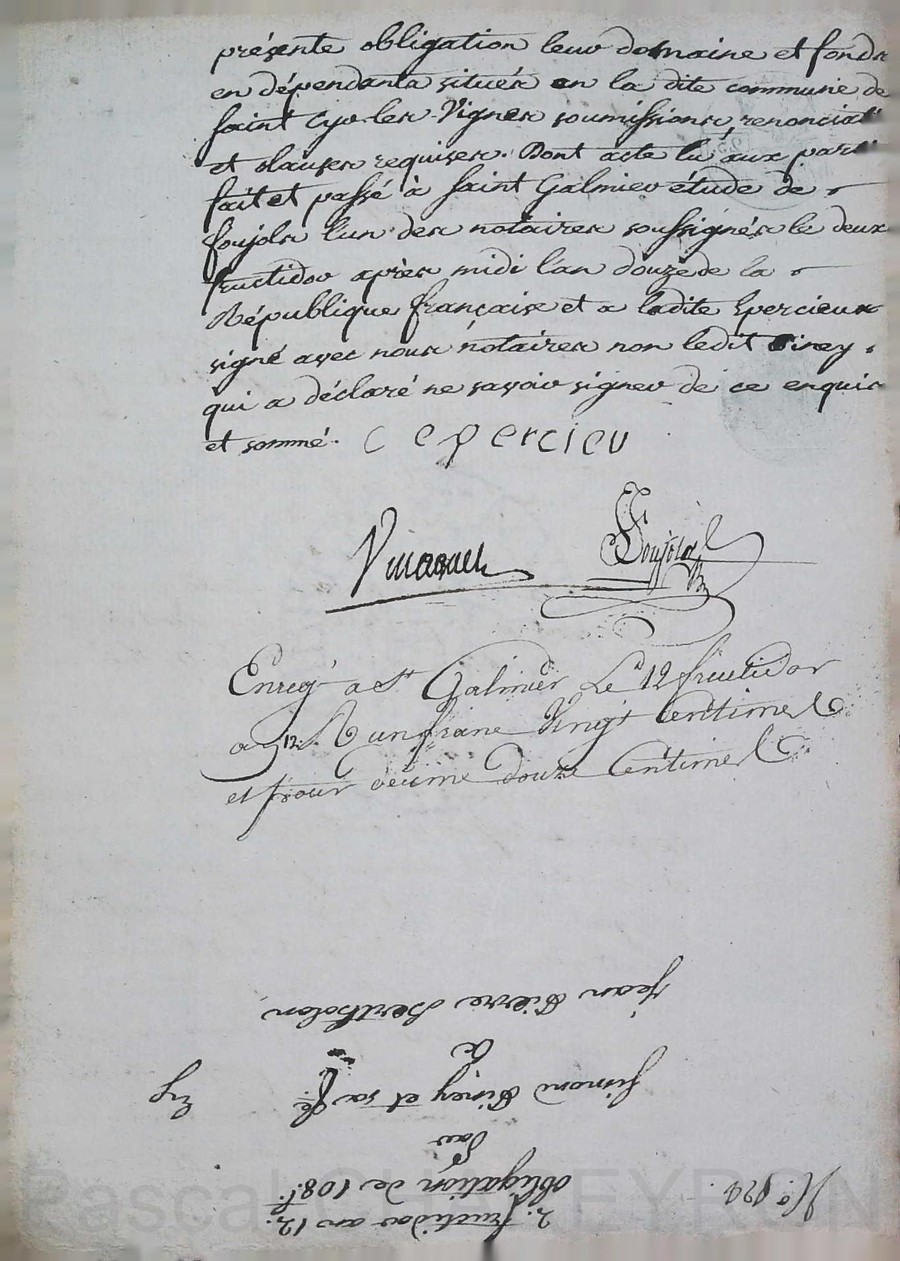 présente obligation leur domaine et fonds
en dépendants situés en la dite commune de
saint Cyr les Vignes soumissions, renonciat
et clauses requises. Dont acte lu aux parti
fait et passé à saint Galmier étude de
foujols l'un des notaires soussignés le deux
fructidor après midi l'an douze de la
République française et a ladite Epercieux
signé avec nous notaires non ledit Piney
qui a déclaré ne savoir signer de ce enquis
et sommé. C epercieu
Foujols
Enreg. a St Galmier Le 12 fructidor
an 12. R un franc Vingt Centimes
et pour décime douze Centimes
2. fructidor an 12.
obligation de 108f.
Par
Simond Piney et sa fe.
a
jean Pierre Bertholon
Pascal CHAREYRON